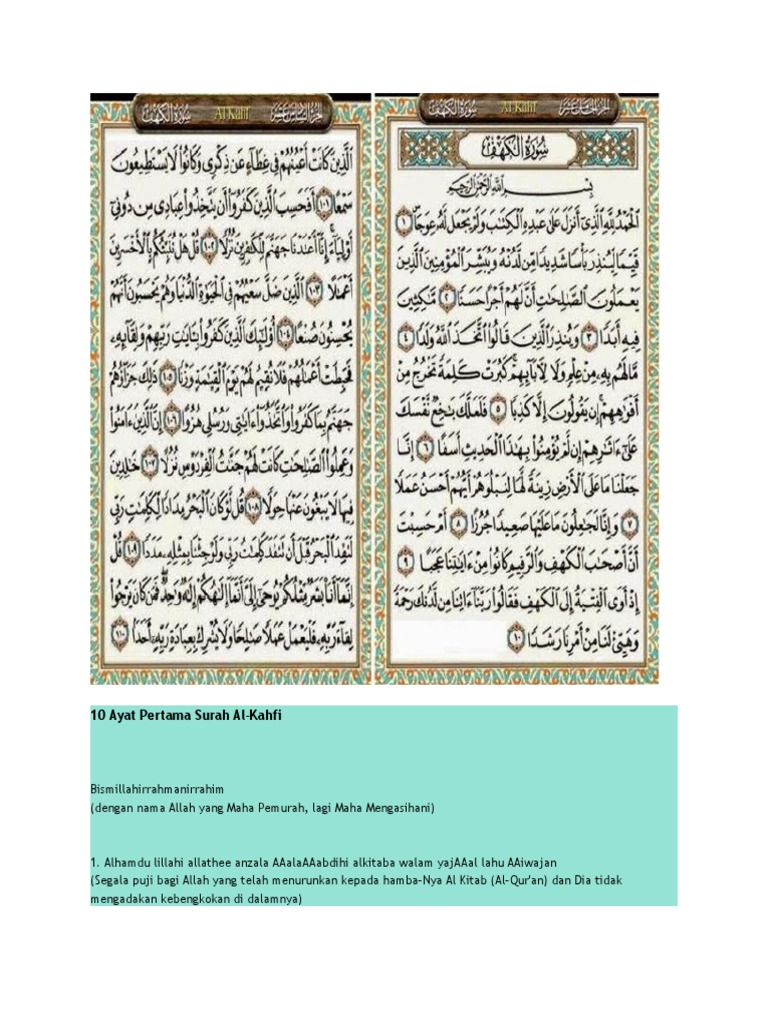 سُورَةُ الكَهْف Al-Kahf الجزء الخامس عشر
سُورَةُ الكَهْفِ
بِسْمِ اللَّهِ الرَّحْمَٰنِ الرَّحِيمِ
ٱلْحَمْدُ لِلَّهِ ٱلَّذِىٓ أَنزَلَ عَلَىٰ عَبْدِهِ ٱلْكِتَٰبَ وَلَمْ يَجْعَل لَّهُۥ عِوَجَا ۜ ١
قَيِّمًا لِّيُنذِرَ بَأْسًا شَدِيدًا مِّن لَّدُنْهُ وَيُبَشِّرَ ٱلْمُؤْمِنِينَ ٱلَّذِينَ
يَعْمَلُونَ ٱلصَّٰلِحَٰتِ أَنَّ لَهُمْ أَجْرًا حَسَنًا ٢ مَّٰكِثِينَ
فِيهِ أَبَدًا ٣ وَيُنذِرَ ٱلَّذِينَ قَالُوا۟ ٱتَّخَذَ ٱللَّهُ وَلَدًا ٤
مَّا لَهُم بِهِۦ مِنْ عِلْمٍ وَلَا لِءَابَآئِهِمْ ۚ كَبُرَتْ كَلِمَةً تَخْرُجُ مِنْ
أَفْوَٰهِهِمْ ۚ إِن يَقُولُونَ إِلَّا كَذِبًا ٥ فَلَعَلَّكَ بَٰخِعٌ نَّفْسَكَ
عَلَىٰٓ ءَاثَٰرِهِمْ إِن لَّمْ يُؤْمِنُوا۟ بِهَٰذَا ٱلْحَدِيثِ أَسَفًا ٦ إِنَّا
جَعَلْنَا مَا عَلَى ٱلْأَرْضِ زِينَةً لَّهَا لِنَبْلُوَهُمْ أَيُّهُمْ أَحْسَنُ عَمَلًا
٧ وَإِنَّا لَجَٰعِلُونَ مَا عَلَيْهَا صَعِيدًا جُرُزًا ٨ أَمْ حَسِبْتَ
أَنَّ أَصْحَٰبَ ٱلْكَهْفِ وَٱلرَّقِيمِ كَانُوا۟ مِنْ ءَايَٰتِنَا عَجَبًا ٩
إِذْ أَوَى ٱلْفِتْيَةُ إِلَى ٱلْكَهْفِ فَقَالُوا۟ رَبَّنَآ ءَاتِنَا مِن لَّدُنكَ رَحْمَةً
وَهَيِّئْ لَنَا مِنْ أَمْرِنَا رَشَدًا ١٠
سُورَةُ الكَهْف Al-Kahf الجزء السادس عشر
ٱلَّذِينَ كَانَتْ أَعْيُنُهُمْ فِى غِطَآءٍ عَن ذِكْرِى وَكَانُوا۟ لَا يَسْتَطِيعُونَ
سَمْعًا ١٠١ أَفَحَسِبَ ٱلَّذِينَ كَفَرُوٓا۟ أَن يَتَّخِذُوا۟ عِبَادِى مِن دُونِىٓ
أَوْلِيَآءَ ۚ إِنَّآ أَعْتَدْنَا جَهَنَّمَ لِلْكَٰفِرِينَ نُزُلًا ١٠٢ قُلْ هَلْ نُنَبِّئُكُم بِٱلْأَخْسَرِينَ
أَعْمَٰلًا ١٠٣ ٱلَّذِينَ ضَلَّ سَعْيُهُمْ فِى ٱلْحَيَوٰةِ ٱلدُّنْيَا وَهُمْ يَحْسَبُونَ أَنَّهُمْ
يُحْسِنُونَ صُنْعًا ١٠٤ أُو۟لَٰٓئِكَ ٱلَّذِينَ كَفَرُوا۟ بِـَٔايَٰتِ رَبِّهِمْ وَلِقَآئِهِۦ
فَحَبِطَتْ أَعْمَٰلُهُمْ فَلَا نُقِيمُ لَهُمْ يَوْمَ ٱلْقِيَٰمَةِ وَزْنًا ١٠٥ ذَٰلِكَ جَزَآؤُهُمْ
جَهَنَّمُ بِمَا كَفَرُوا۟ وَٱتَّخَذُوٓا۟ ءَايَٰتِى وَرُسُلِى هُزُوًا ١٠٦ إِنَّ ٱلَّذِينَ ءَامَنُوا۟
وَعَمِلُوا۟ ٱلصَّٰلِحَٰتِ كَانَتْ لَهُمْ جَنَّٰتُ ٱلْفِرْدَوْسِ نُزُلًا ١٠٧ خَٰلِدِينَ
فِيهَا لَا يَبْغُونَ عَنْهَا حِوَلًا ١٠٨ قُل لَّوْ كَانَ ٱلْبَحْرُ مِدَادًا لِّكَلِمَٰتِ رَبِّى
لَنَفِدَ ٱلْبَحْرُ قَبْلَ أَن تَنفَدَ كَلِمَٰتُ رَبِّى وَلَوْ جِئْنَا بِمِثْلِهِۦ مَدَدًا ١٠٩ قُلْ
إِنَّمَآ أَنَا۠ بَشَرٌ مِّثْلُكُمْ يُوحَىٰٓ إِلَىَّ أَنَّمَآ إِلَٰهُكُمْ إِلَٰهٌ وَٰحِدٌ ۖ فَمَن كَانَ يَرْجُوا۟
لِقَآءَ رَبِّهِۦ فَلْيَعْمَلْ عَمَلًا صَٰلِحًا وَلَا يُشْرِكْ بِعِبَادَةِ رَبِّهِۦٓ أَحَدًۢا ١١٠
10 Ayat Pertama Surah Al-Kahfi
Bismillahirrahmanirrahim
(dengan nama Allah yang Maha Pemurah, lagi Maha Mengasihani)
1. Alhamdu lillahi allathee anzala AAalaAAabdihi alkitaba walam yajAAal lahu AAiwajan
(Segala puji bagi Allah yang telah menurunkan kepada hamba-Nya Al Kitab (Al-Qur'an) dan Dia tidak
mengadakan kebengkokan di dalamnya)